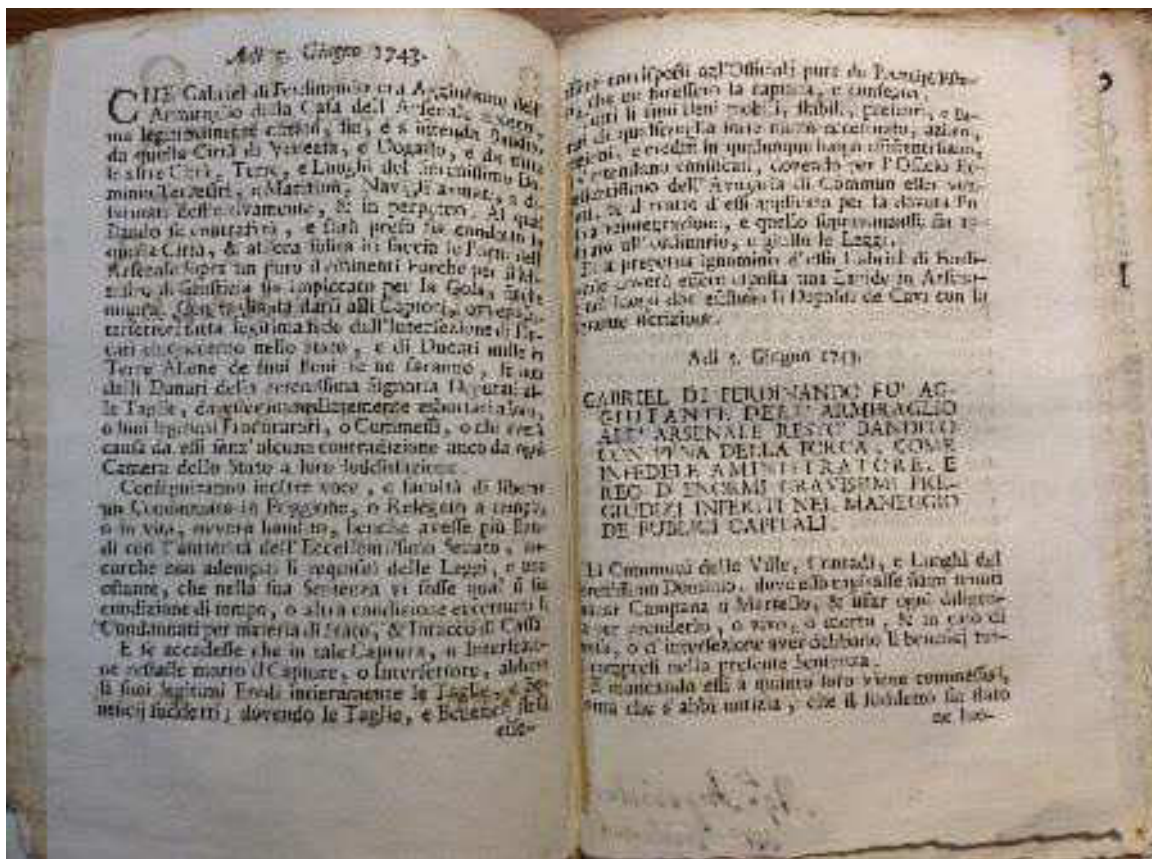 Adi 5. Giugno 1743.
CHE Gabriel di Ferdinando era Aggiutante dell'
Armiraglio della Casa dell'Arsenal,
ma legitimamente citato, sia, e s'intenda bandito
da questa Città di Venezia, e Dogado, e da tutte
le altre Città, Terre, e Luoghi del Serenissimo Do-
minio Terrestri, e Maritimi, Navigli armati, e di-
sarmati definitivamente, & in perpetuo. Al qual
Bando se contrafarà, e sarà preso sia condotto in
questa Città, & all'ora solita in faccia le Porte dell'
Arsenale sopra un paro d'eminenti Forche per il Mi-
nistro di Giustizia sia impiccato per la Gola, sicchè
muora. Con taglia darsi alli Captori, overo
Interfettori fatta legitima fede dell'Interfezione di Du-
cati nello Stato, e di Ducati mille in
Terre Aliene de suoi Beni se ne saranno, se non
dalli Danari della Serenissima Signoria Deputati al-
le Taglie, immediatamente esborsati a loro,
o suoi legitimi Procuratori, o Commessi, o chi averà
causa da essi senz'alcuna contradizione anco da ogni
Camera dello Stato a loro soddisfazione.
Conseguiranno inoltre voce, e facoltà di liberar
un Condannato in Preggione, o Relegato a tempo,
o in vita, overo bandito, benche avesse più Ban-
di con l'autorità dell'Eccellentissimo Senato, an-
corche non adempiti li requisiti delle Leggi, e non
ostante, che nella sua Sentenza vi fosse qual si sia
condizione di tempo, o altra condizione eccettuati li
Condannati per materia di Stato, & Intacco di Cassa.
E se accadesse che in tale Captura, o Interfezio-
ne restasse morto il Captore, o Interfettore, abbino
li suoi legitimi Eredi intieramente le Taglie, e Be-
neficj suddetti; dovendo le Taglie, e Beneficj stessi
esse-
esser corrisposti agl'Officiali pure de Prencipi
che ne facessero la captura, e consegna.
Tutti li suoi Beni mobili, stabili, presenti, e fu-
turi di qualsivoglia sorte niuno eccettuato, azioni,
ragioni, e crediti in qualunque luogo esistenti siano,
s'intendano confiscati, dovendo per l'Officio Ec-
cellentissimo dell'Avogaria di Commun esser ven-
duti, & il tratto d'essi applicato per la dovuta Pu-
blica reintegrazione, e quello sopravanzasse sia
all'ordinario, e giusto le Leggi.
E a perpetua ignominia d'esso Gabriel di Ferdi-
nando doverà essere esposta una Lapide in Arsena-
le nel luogo dov'esisteva il Deposito de Cavi con la
seguente iscrizione.
Adi 5. Giugno 1743.
GABRIEL DI FERDINANDO FU' AG-
GIUTANTE DELL' ARMIRAGLIO
ALL' ARSENALE RESTO' BANDITO
CON PENA DELLA FORCA, COME
INFEDELE AMINISTRATORE, E
REO D'ENORMI GRAVISSIMI PRE-
GIUDIZI INFERITI NEL MANEGGIO
DE PUBLICI CAPITALI.
Li Communi delle Ville, Contadi, e Luoghi del
Serenissimo Dominio, dove esso capitasse siano tenuti
sonar Campana a Martello, & usar ogni diligen-
za per prenderlo, o vivo, o morto, & in caso di
presa, o d'interfezione aver debbano li beneficj tutti
espressi nella presente Sentenza.
E mancando essi a quanto loro viene commesso,
che s'abbi notizia, che il suddetto sia stato
ne luo-